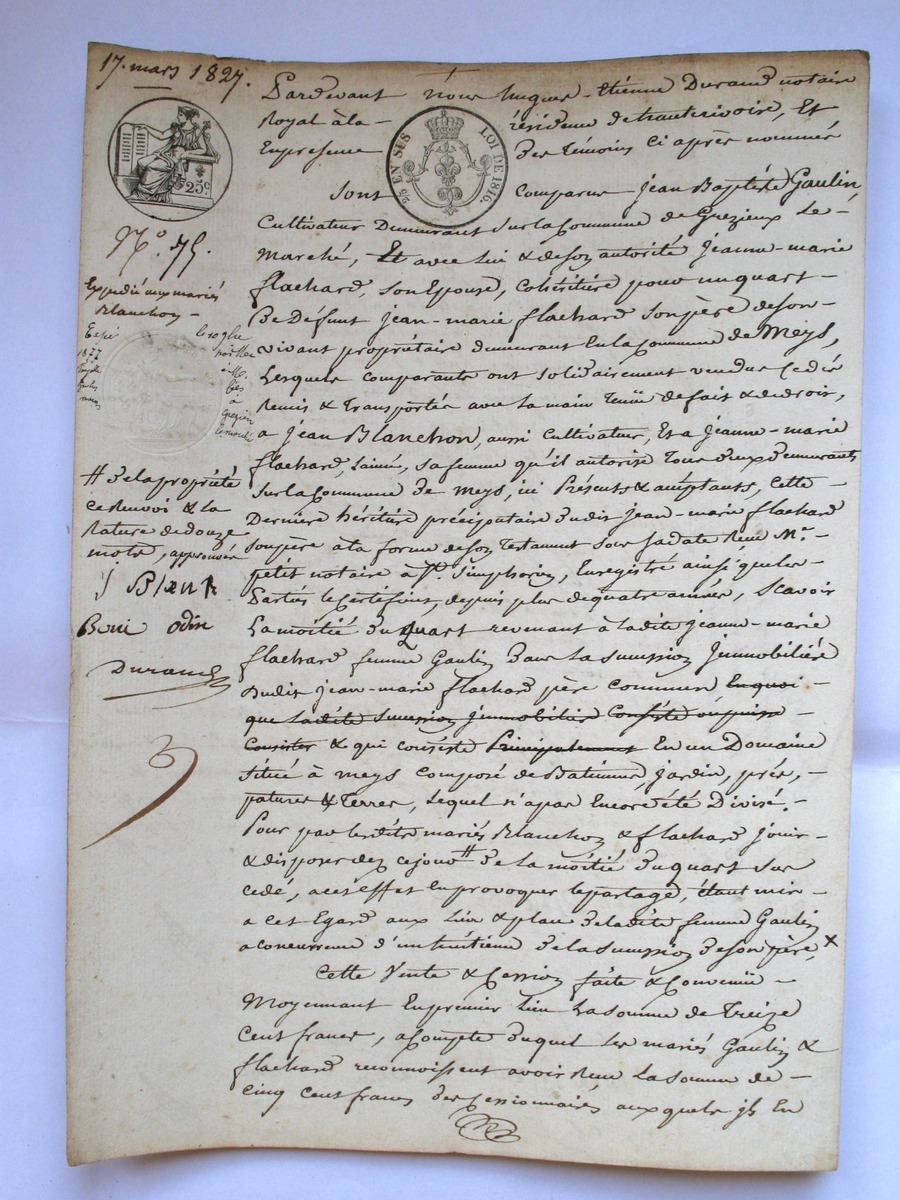 17. mars 1827.
Pardevant nous hugues-Etienne Durand notaire
Royal à la résidence de hauterivoire, Et
En présence des Témoins ci après nommés
25 EN SUS LOI DE 1816.
25c
Sont comparus Jean Baptiste Gaulin
Cultivateur Demeurant sur la Commune de Grezieux Le-
Marché, Et avec lui & de son autorité Jeanne-marie
flachard, son Epouse, Cohéritière pour un quart-
De Défunt jean-marie flachard son père de son-
vivant propriétaire demeurant En la Commune de Meys,
Lesquels comparants ont solidairement vendus Cédé
Remis & transportés avec la main Tenüe de fait & de droit,
a jean Blanchon, aussi Cultivateur, Et a jeanne-marie
flachard, l'ainée, sa femme qu'il autorise Tous deux Demeurants
sur la Commune De meys, ici Présents & acceptants, Cette-
Dernière héritière préciputaire dudit jean-marie flachard
son père à la forme de son testament sous sa date Reçu Me.
petit notaire à St. Simphorien, Enregistré ainsi que les-
Parties le Certifient, depuis plus de quatre années, scavoir
La moitié du Quart revenant à ladite jeanne-marie
flachard femme Gaulin dans la succession Jmmobilière
dudit jean-marie flachard père commun En quoi-
que ladite succession jmmobilier Consiste ou puisse
Consister & qui consiste Principalement En un Domaine
situé à meys composé de Batiments, jardin, prés,-
patures & Terres, Lequel n'a pas Encore été Divisé.-
Pour par lesdits mariés Blanchon & flachard jouir-
& disposer dez ce jour # de la moitié du quart sus
cédé, a cet effet En provoquer le partage, étant mis-
a cet Egard aux Lieu & place de ladite femme Gaulin
a concurrence d'un huitième de la succession de son père, x
Cette Vente & Cession faite & Convenüe-
Moyennant En premier Lieu La somme de Treize
Cent francs, a Compte duquel Les mariés Gaulin &
flachard reconnoissent avoir Reçu La somme de-
Cinq Cent francs des Cessionnaires auxquels ils En
No. 75.
Expédié aux mariés
Blanchon
1877
à
Grezieu
le marché
# de la propriété
ce Renvoi & la
Rature de douze
mots, approuvés
J Blanc
Odin
Durand